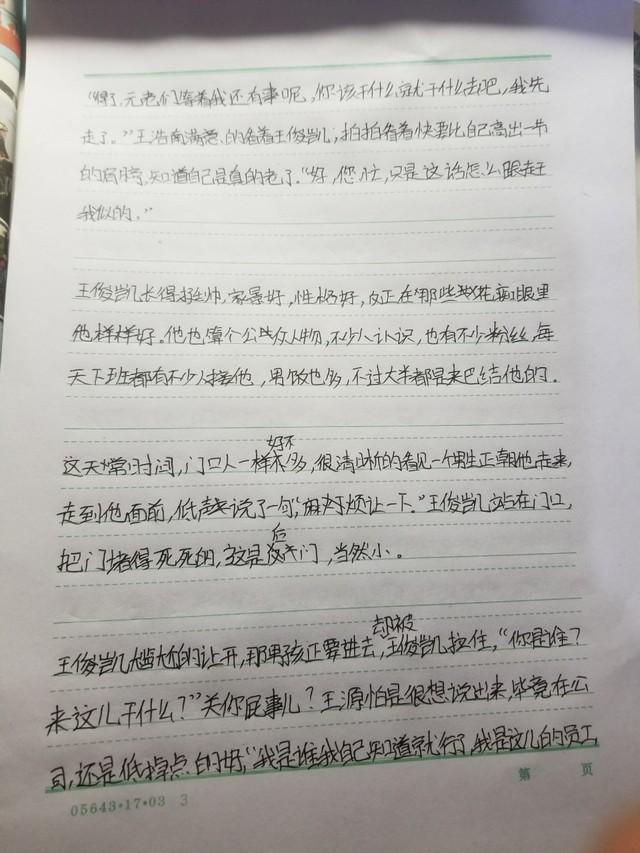 “得了,元老们等着我还有事呢,你该干什么就干什么去吧,我先
走了。”王浩南满意的看着王俊凯,拍拍看着快要比自己高出一节
的肩膀,知道自己是真的老了。“好,您忙,只是这话怎么跟赶
我似的。”
王俊凯长得挺帅,家景好,性格好,反正在那些眼里
他样样好。他也算个公众人物,不少人认识,也有不少粉丝,每
天下班都有不少人接他,男的也多,不过大半都是来巴结他的。
好不
这天常时间,门口人一样多,很清晰的看见一个男生正朝他走来,
走到他面前,低声说了一句“麻烦让一下。”王俊凯站在门口,
后
把门堵得死死的,这是门,当然小。
却被
王俊凯尴尬的让开,那男孩正要进去,王俊凯拉住,“你是谁?
来这儿干什么?”关你屁事儿?王源怕是很想说出来,毕竟在公
司,还是低掉点的好,“我是谁我自己知道就行了,我是这儿的员工,
第 页
05643·17·03 3